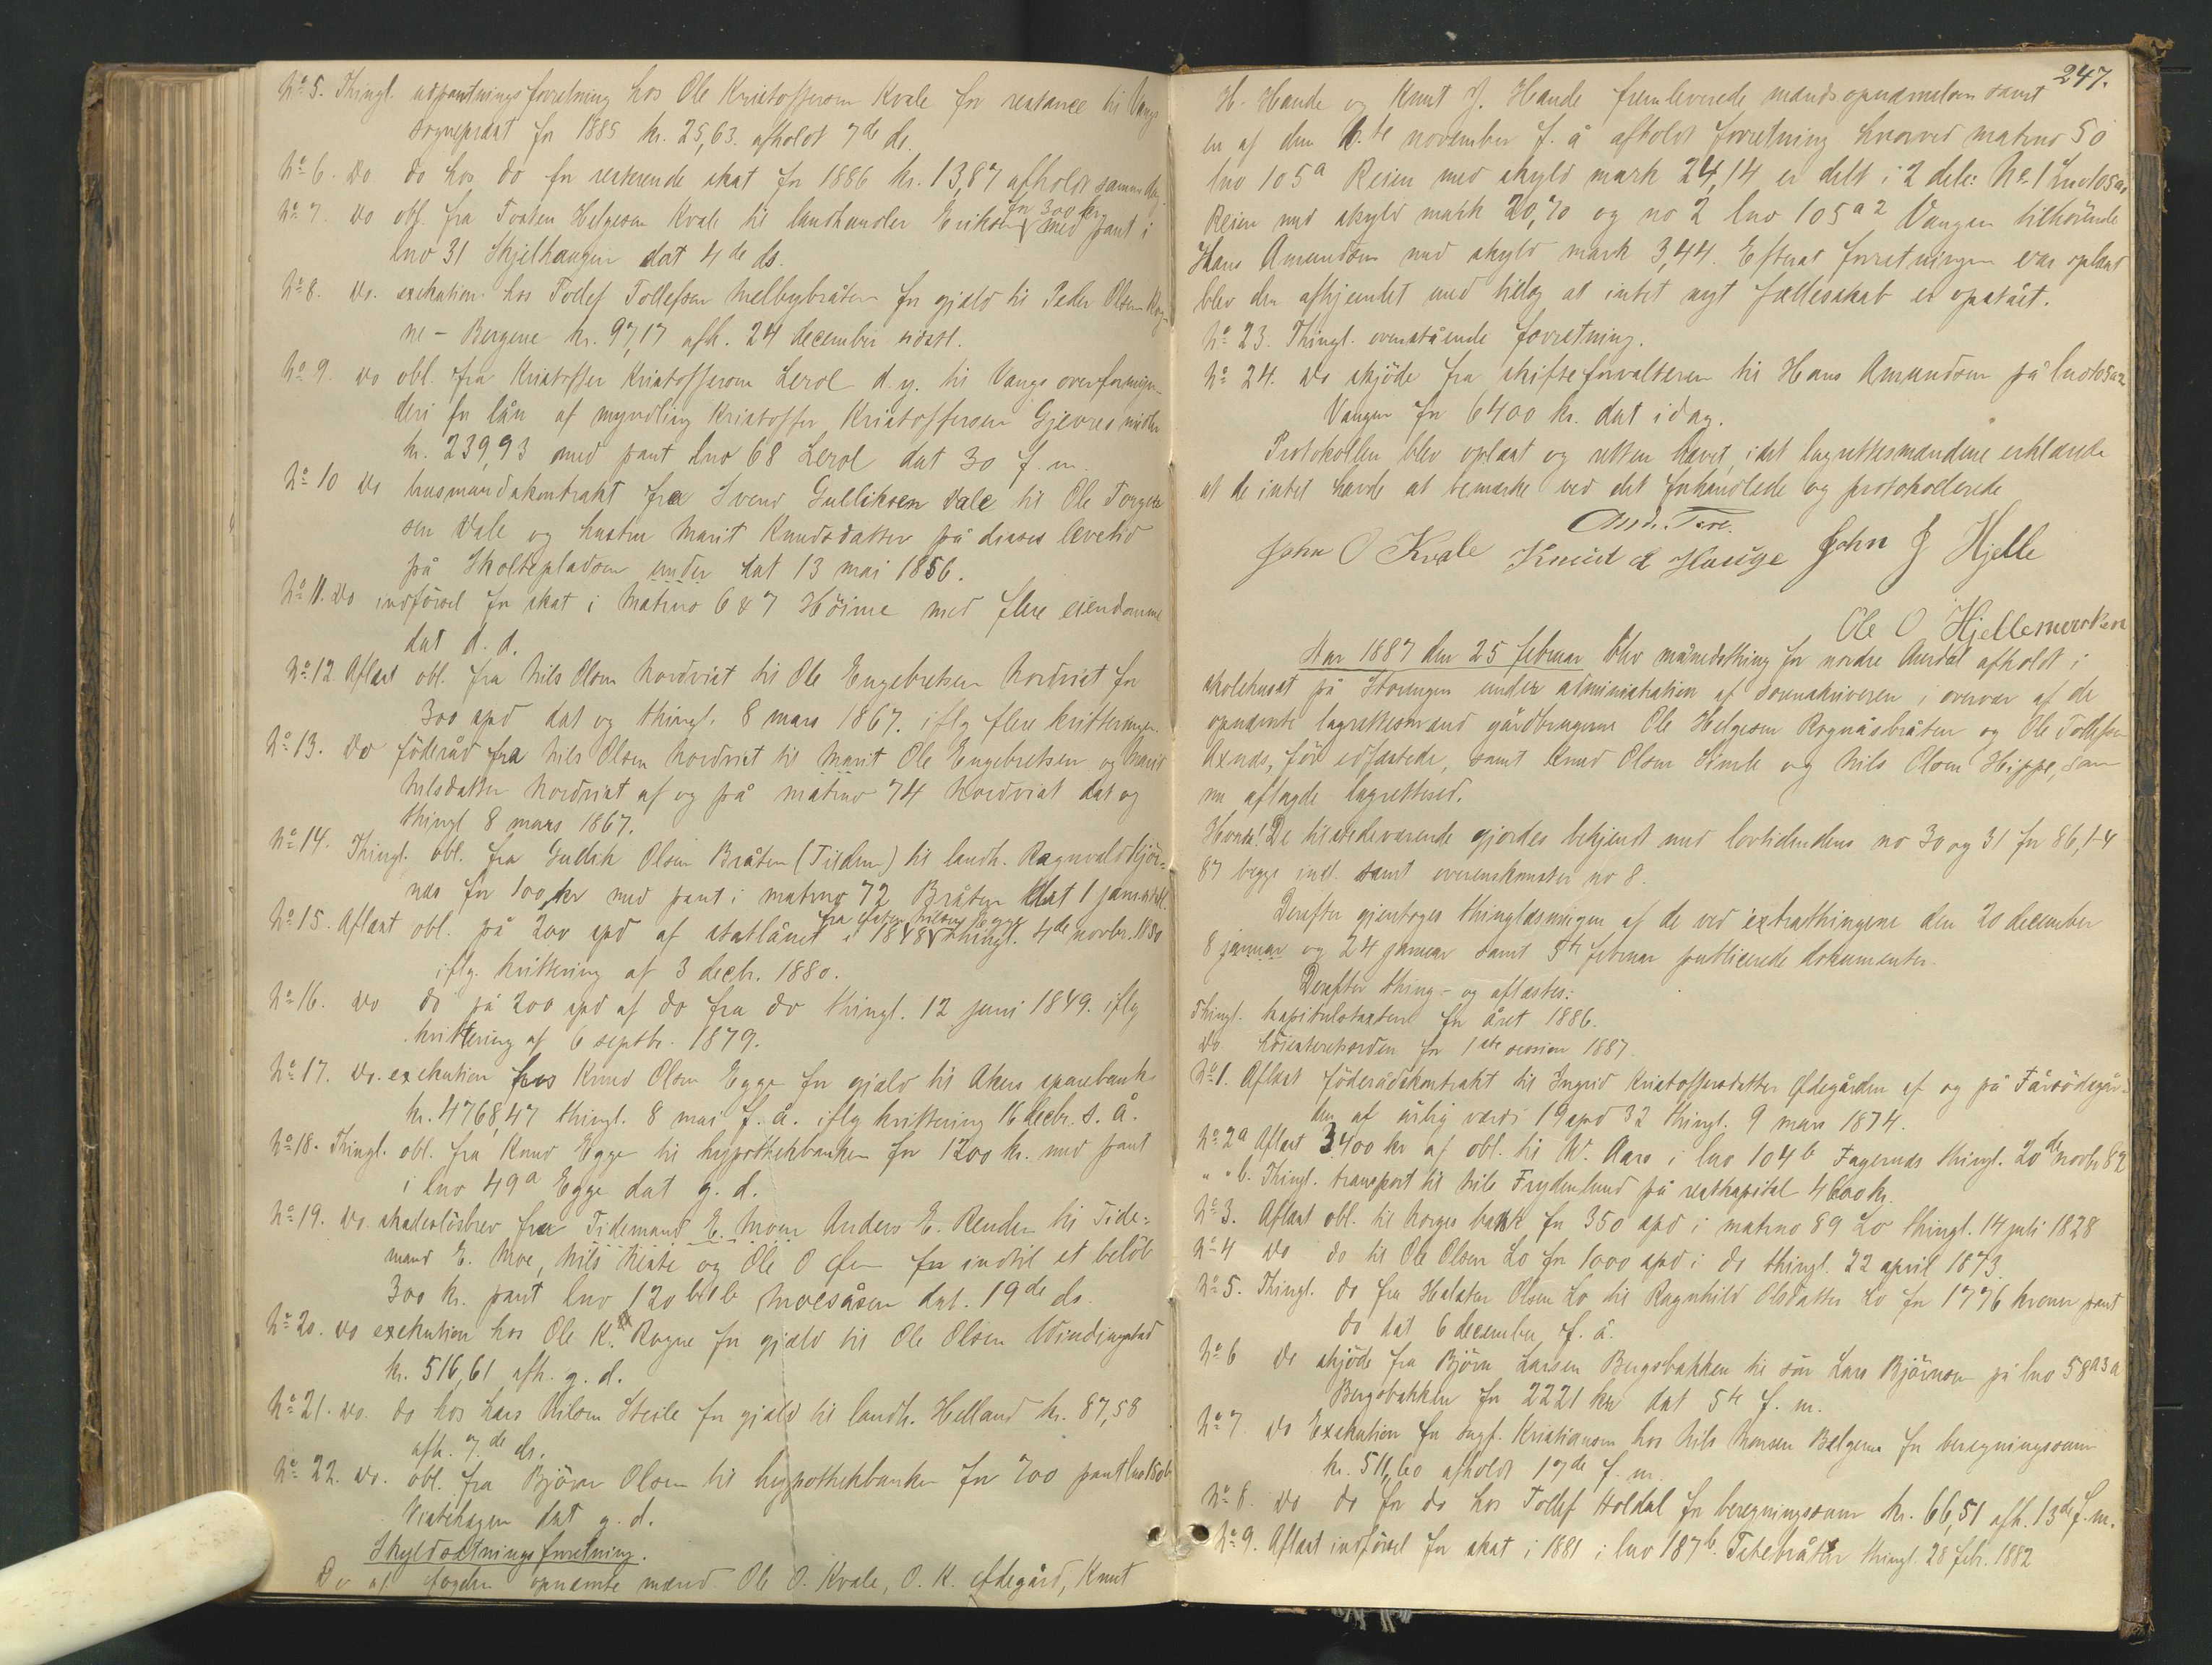 No 5. Thingl. udpantningsforretning hos Ole Kristoffersen Kvale for restance til Vangs
sogneprest for 1885 kr. 25,63. afholdt 7de ds.
No 6. Do do hos do for resterende skat for 1886 kr. 13,87 afholdt samme dag.
for 300 kr
No 7. Do obl. fra Torsten Helgesen Kvale til landhandler Eriksen med pant i
lno 31 Skjelhaugen dat 4de ds.
No 8. Do. exekution hos Tollef Tollefsen Melbybråten for gjæld til Peder Olsen Rog-
ne - Bergene kr. 97,17 afh. 24 december sidstl.
No 9. Do obl. fra Kristoffer Kristoffersen Lerol d.y. til Vangs overformyn-
deri for lån af myndling Kristoffer Kristoffersen Gjevres midler
kr. 239,93 med pant lno 68 Lerol dat 30 f.m.
No 10 Do husmandskontrakt fra Svend Gulliksen Dale til Ole Torger-
sen Dale og hustru Marit Knudsdatter på disses levetid
på Skoltepladsen under dat 13 mai 1856.
No 11. Do indförsel for skat i Matrno 6 & 7 Höime med flere eiendomme
dat d.d.
No 12 Aflæst obl. fra Nils Olsen Nordvist til Ole Engebretsen Nordvist for
300 spd dat og thingl. 8 mars 1867. iflg flere kvitteringer.
No 13. Do föderåd fra Nils Olsen Nordvist til Marit Ole Engebretsen og Marit
Nilsdatter Nordvist af og på matrno 74 Nordvist dat og
thingl 8 mars 1867.
No 14. Thingl. obl. fra Gudbr. Olsen Bråten (Tildem) til landh. Ragnvald Kjör-
næs for 100 kr med pant i matrno 72 Bråten dat 1 januar
fra Peter Nilsen Egge
No 15. Aflæst obl. på 200 spd af statlånet i 1848 thingl. 4de novbr. 1850
iflg. kvittering af 3 decbr. 1880.
No 16. Do do på 200 spd af do fra do thingl. 12 juni 1849. iflg
kvittering af 6 septbr. 1879.
No 17. Do. exekution hos Knud Olsen Egge for gjæld til Akers sparebank
kr. 4768,47 thingl. 8 mai f.å. iflg kvittering 16 decbr. s.å.
No 18. Thingl. obl. fra Knud Egge til hypothekbanken for 1200 kr. med pant
i lno 49a Egge dat g.d.
No 19. Do. skadeslösbrev fra Tidemand E. Moen Anders E. Renden til Tide-
mand E. Moe, Nils Neste og Ole O Öen for indtil et belöb
300 kr. pant lno 120 b1b Moesåsen dat. 19de ds.
No 20. Do exekution hos Ole K. Rogne for gjæld til Ole Olsen Windingstad
kr. 516,61 afh. g.d.
No 21. Do. do hos Lars Nilsen Steile for gjæld til landh. Helland kr. 87,58
afh. 7de ds.
No 22. Do. obl. fra Björn Olsen til hypothekbanken for 700 pant lno 150b
Vistehagen dat g.d.
Skyldsætningsforretning.
De af fogden opnævnte mænd Ole O. Kvale, O. K. Ödegård, Knut
247.
H. Hande og Knut J. Hande fremleverede mandsopnævnelsen samt
en af dem 6.te november f.å afholdt forretning hvorved matrno 50
lno 105a Reien med skyld mark 24,14 er delt i 2 dele: No 1 lno 105a1
Reien med skyld mark 20,70 og no 2 lno 105a2 Vangen tilhörende
Hans Amundsen med skyld mark 3,44. Efterat forretningen var oplæst
blev den afhjemlet med tillæg at intet nyt fællesskab er opstået.
No 23. Thingl. ovenstående forretning.
No 24. Do skjöde fra skifteforvalteren til Hans Amundsen på lno 105a2
Vangen for 6400 kr. dat idag.
Protokollen blev oplæst og retten hævet, idet lagrettesmændene erklærede
at de intet havde at bemærke ved det forhandlede og protokollerede
John O Kvale Knud E Hauge John J Hjelle
Ole O Hjellemoerken
Aar 1887 den 25 februar blev månedsthing for nordre Aurdal afholdt i
skolehuset på Storengen under administration af sorenskriveren, i overvær af de
opnævnte lagrettesmænd gårdbrugerne Ole Helgesen Rognåsbråten og Ole Tollefsen
Axnæs, för edfæstede, samt Knud Olsen Simle og Nils Olsen Hippe, som
nu aflagde lagretteed.
Hvorda! De tilstedeværende gjordes bekjendt med lovtidendens no 30 og 31 for 86, 1-4
87 begge incl. samt overenskomster no 8.
Derefter gjentoges thinglæsningen af de ved extrathingene den 20 december
8 januar og 24 januar samt 5te februar publicerede dokumenter.
Derefter thing- og aflæstes:
Thingl. Kapitelstaxten for året 1886.
Do höiesteretsorden for 1ste session 1887.
No 1. Aflæst föderådskontrakt til Ingrid Kristoffersdatter Ödegården af og på Fårsödegår-
den af årlig værdi 19 spd 32 thingl. 9 mars 1874.
No 2a Aflæst 3400 kr af obl. til W. Aars i lno 104b Fagernæs thingl. 20de novbr 82
" " b. Thingl. transport til Nils Frydenlund på restkapital 4600 kr.
No 3. Aflæst obl. til Norges bank for 350 spd i matrno 89 Lo thingl. 14 juli 1828
No 4 Do do til Ole Olsen Lo for 1000 spd i do thingl. 22 april 1873.
No 5. Thingl. do fra Halsten Olsen Lo til Ragnhild Olsdatter Lo for 1776 kroner pant
do dat 6 december f.å.
No 6 Do skjöde fra Björn Larsen Bergsbakken til sön Lars Björnsen på lno 58a3a
Bergsbakken for 2221 kr dat 5te f.m.
No 7 Do Exekution for sagf. Kristiansen hos Nils Monsen Bælgene for beregningssum
kr. 511,60 afholdt 17de f.m.
No 8. Do do for do hos Tollef Holdal for beregningssum kr. 66,51 afh. 13de f.m.
No 9. Aflæst indförsel for skat i 1881 i lno 187b. Titebråten thingl. 28 feb. 1882